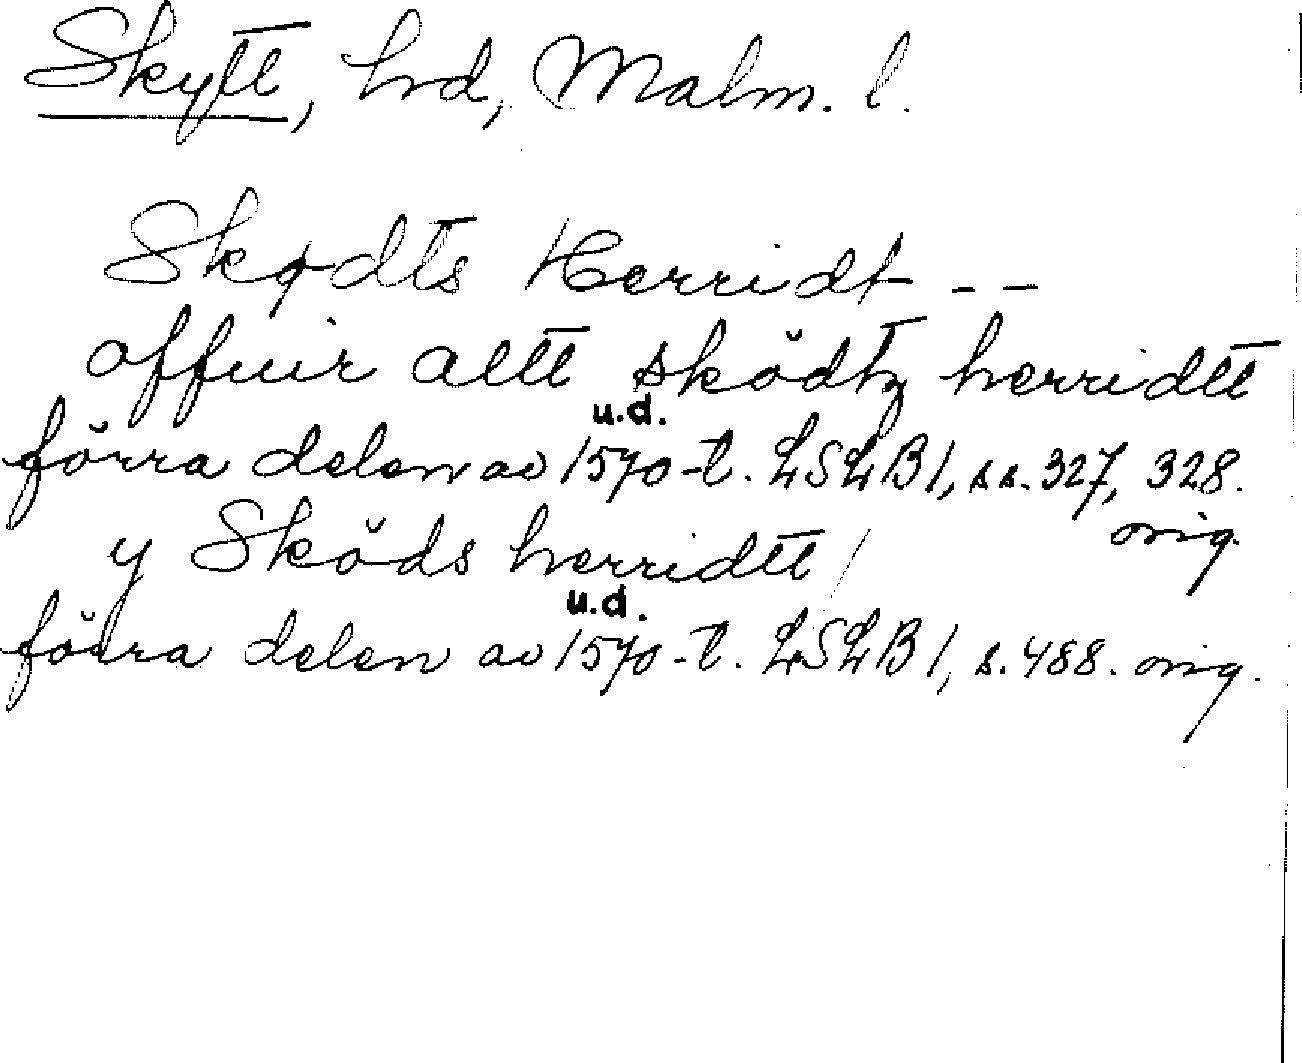 Skytt, hrd, Malm. l.
Skødts Herridt --
offuir altt sködtz herridtt
u.d.
förra delen av 1570-t. LSLB 1, ss. 327, 328.
orig.
y Sköds herridtt /
u.d.
förra delen av 1570-t. LSLB 1, s. 488. orig.